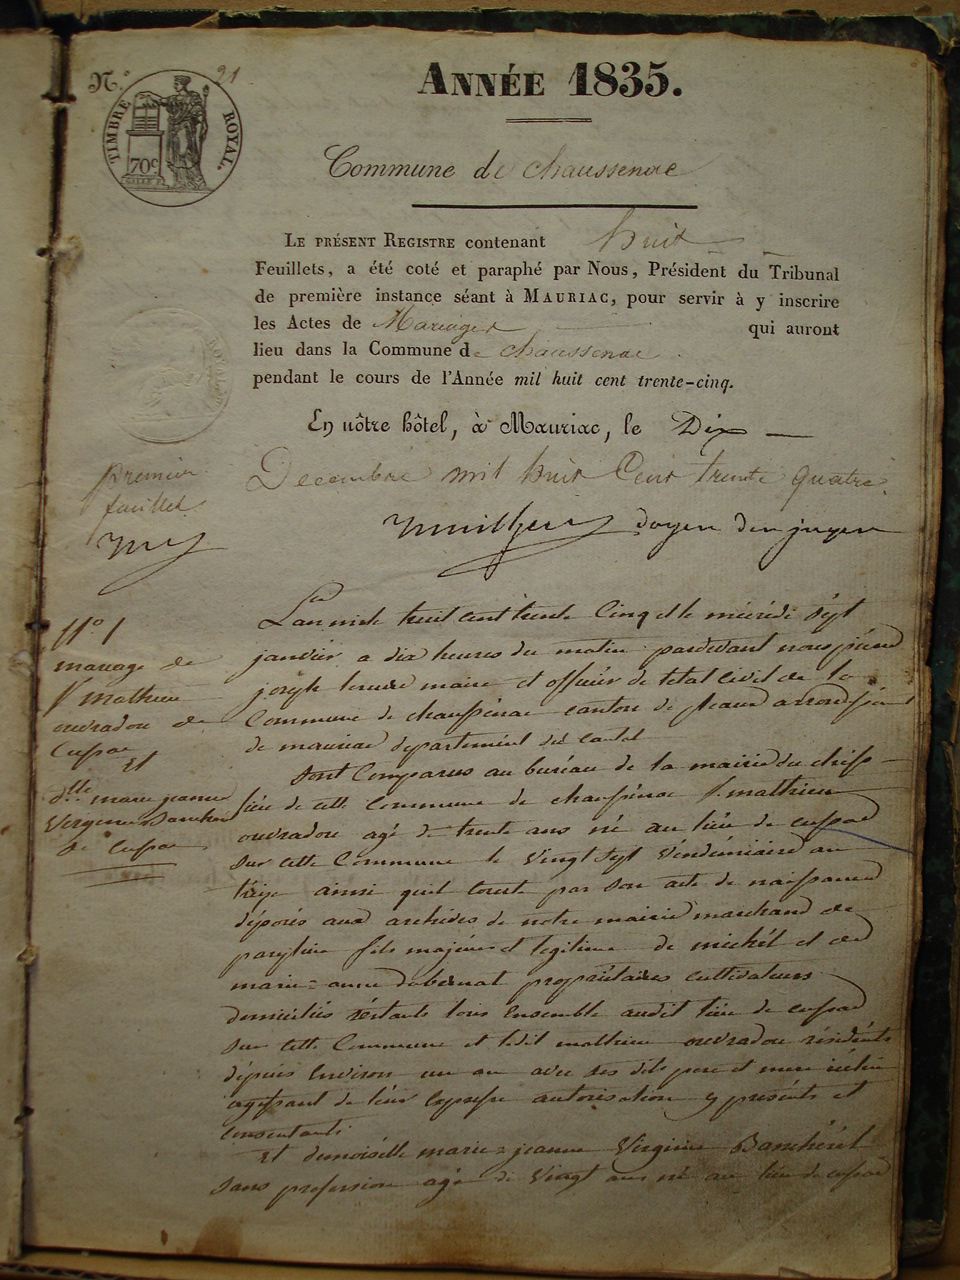 N.° 21
TIMBRE ROYAL.
70c
ANNÉE 1835.
Commune de Chaussenac
LE PRÉSENT REGISTRE contenant huit
Feuillets, a été coté et paraphé par Nous, Président du Tribunal
de première instance séant à MAURIAC, pour servir à y inscrire
les Actes de Mariages qui auront
lieu dans la Commune de Chaussenac
pendant le cours de l'Année mil huit cent trente-cinq.
En nôtre hôtel, à Mauriac, le Dix
Decembre mil huit Cent trente quatre.
doyen des juges
premier
feuillet
N° 1
mariage de
Sr mathieu
ouvradou de
Cussac Et
dlle marie jeanne
Virginie Bancherel
de Cussac
L'an mil huit cent trente Cinq et le mécrédi sept
janvier a dix heures du matin pardevant nous pierre
joseph maire et officier de l'etat civil de la
Commune de chaussenac canton de pleaux arrondissement
de mauriac departement du cantal
Sont Comparus au bureau de la mairie du chef
lieu de cette Commune de chaussénac Sr mathieu
ouvradou agé de trente ans né au lieu de cussac
sur cette Commune le Vingt Sept Véndémiaire an
treize ainsi quil conste par son acte de naissance
déposés aux archives de notre mairie marchand de
fils majeur et légitime de michel et de
marie=anne dubernat propriétaires cultivateurs
domiciliés réstants tous Ensemble audit lieu de cussac
sur cette Commune et ledit mathieu ouvradou résidents
dépuis Environ un an avec ses dits pere et mere
agissant de leur Expresse autorisation y présents et
consentants
Et demoiselle marie=jeanne Virginie Banchérél
sans profession agée de Vingt ans né au lieu de cussac